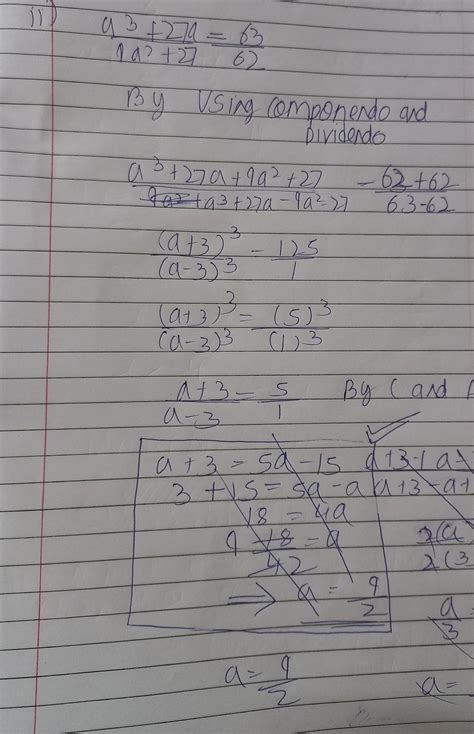 ii) a³+27a/9a²+27 = 63/62
By Using componendo and
Dividendo
a³+27a+9a²+27/a³+27a-9a²-27 = 62+62/63-62
(a+3)³/(a-3)³ = 125/1
(a+3)³/(a-3)³ = (5)³/(1)³
a+3/a-3 = 5/1 By C and
a+3 = 5a-15 a+3+a-
3+15 = 5a-a a+3-a+
18 = 4a
9 18/42 = a 2(a
2(3
⇒ a = 9/2 a/3
a = 9/2 a=